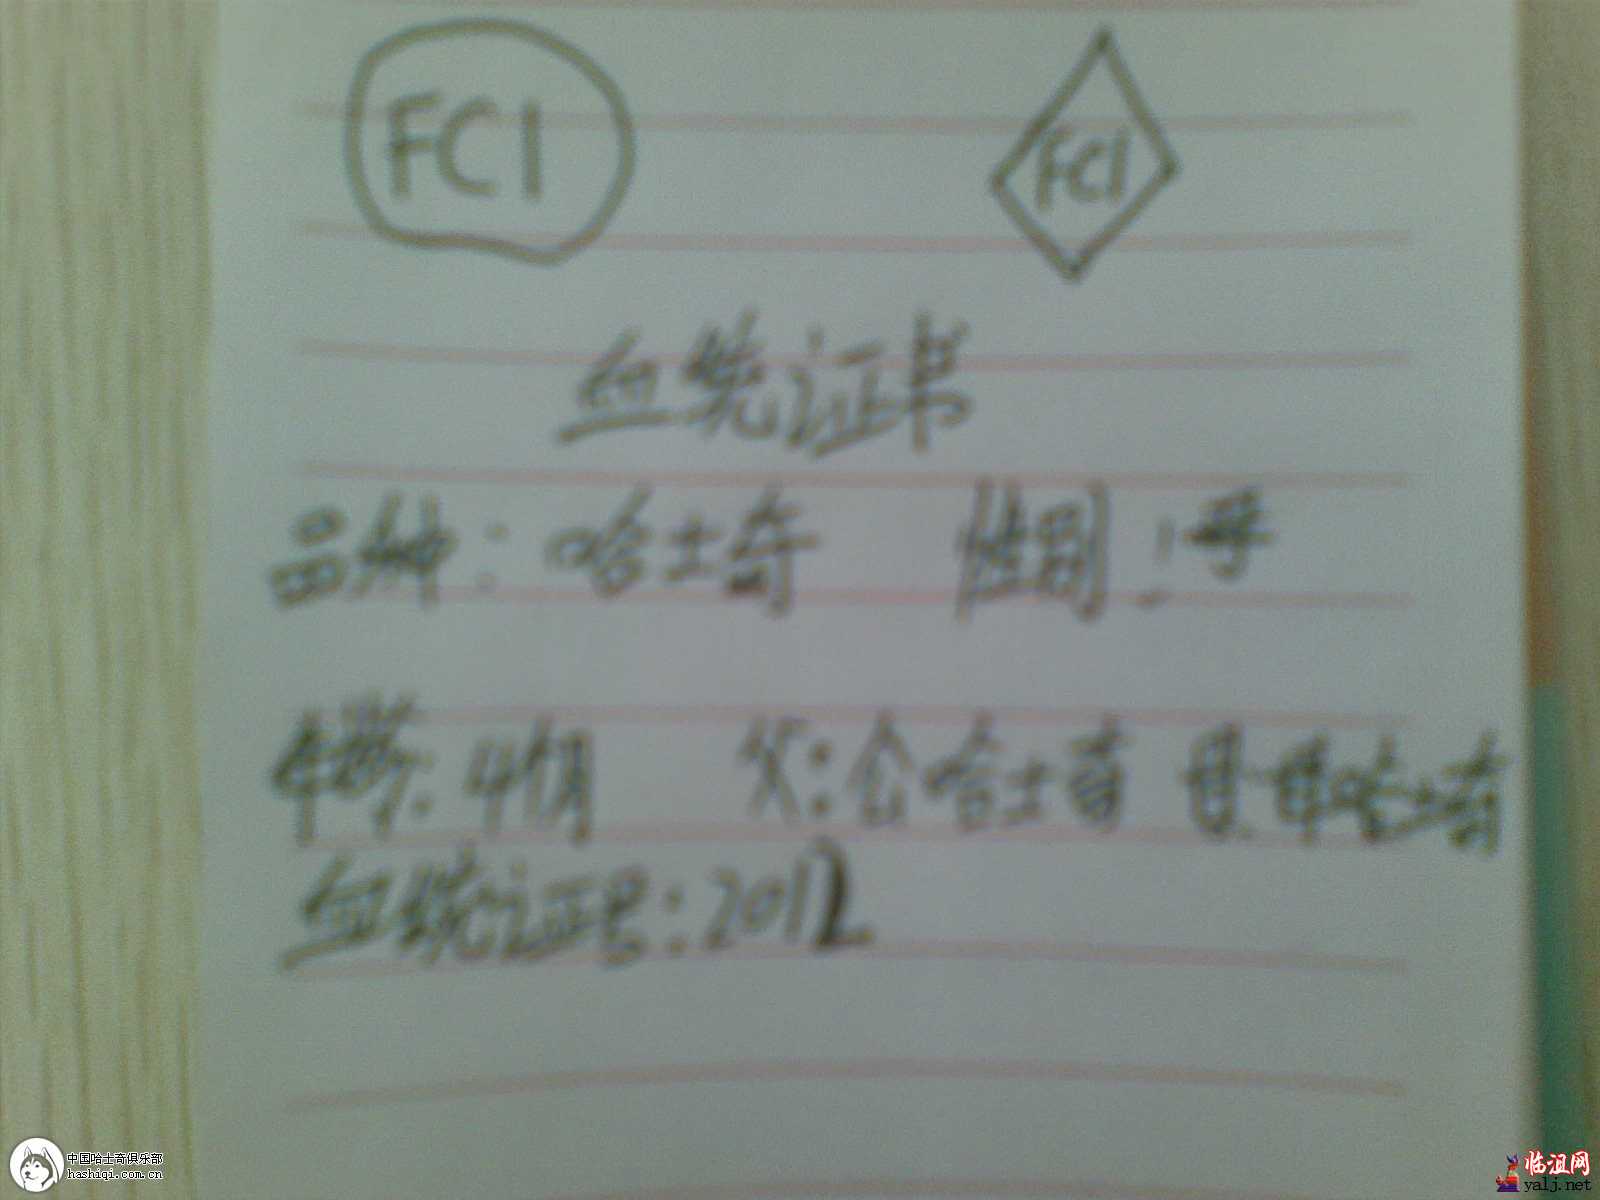 FCI FCI
血统证书
品种:哈士奇 性别:母
年龄:4个月 父:公哈士奇 母:母哈士奇
血统证号:2012
中国哈士奇俱乐部
hashiqi.com.cn
临沮网
yalj.net